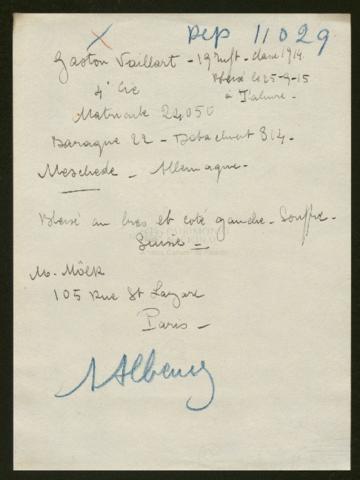 Rep 11029
Gaston Vaillart - 19 Inft - classe 1914
Blessé le 25-9-15
4e Cie à Tahure -
Matricule 24050
Baraque 22 - Détachmt 314 -
Meschede - Allemagne -
Blessé au bras et coté gauche - Souffre -
Suisse -
M. Môlk
105 Rue St Lazare
Paris -